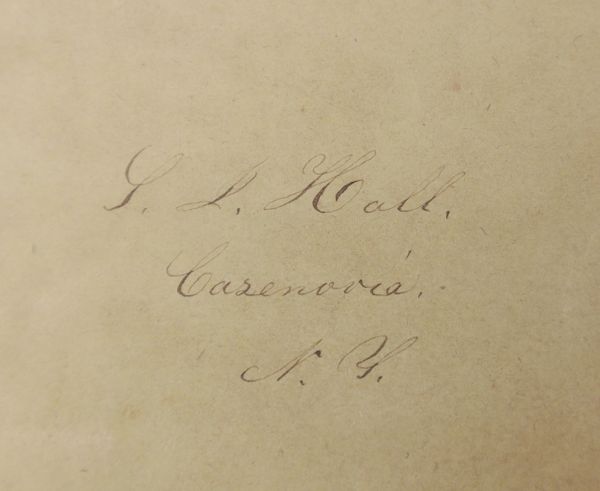 S. L. Hall.
Cazenovia.
N. Y.